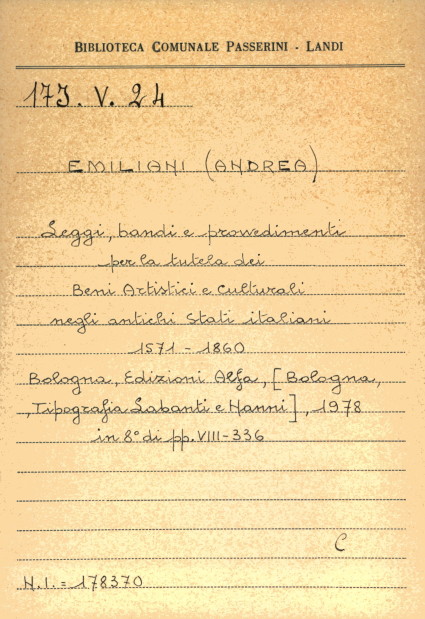 BIBLIOTECA COMUNALE PASSERINI - LANDI
17J. V. 24
EMILIANI (ANDREA)
Leggi, bandi e provvedimenti
per la tutela dei
Beni Artistici e Culturali
negli antichi Stati italiani
1571 - 1860
Bologna, Edizioni Alfa, [Bologna,
, Tipografia Labanti e Nanni], 1978
in 8° di pp. VIII-336
C
N.I. = 178370